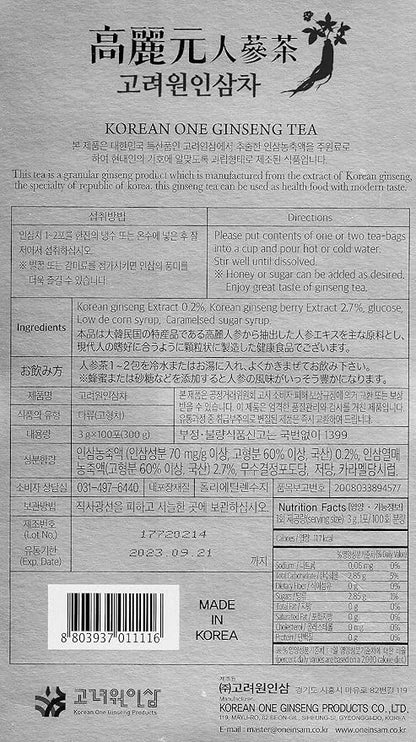 高麗元人蔘茶
고려원인삼차
KOREAN ONE GINSENG TEA
본 제품은 대한민국 특산품인 고려인삼에서 추출한 인삼농축액을 주원료로
하여 현대인의 기호에 알맞도록 과립형태로 제조된 식품입니다.
This tea is a granular ginseng product which is manufactured from the extract of Korean ginseng,
the specialty of republic of korea. this ginseng tea can be used as health food with modern taste.
섭취방법
인삼차 1~2포를 한잔의 냉수 또는 온수에 넣은 후 잘
저어서 섭취하십시오.
※ 벌꿀 또는 감미료를 첨가시키면 인삼의 풍미를
더욱 즐길 수 있습니다.
Directions
Please put contents of one or two tea-bags
into a cup and pour hot or cold water.
Stir well until dissolved.
※ Honey or sugar can be added as desired.
Enjoy great taste of ginseng tea.
Ingredients
Korean ginseng Extract 0.2%, Korean ginseng berry Extract 2.7%, glucose,
Low de corn syrup, Caramelsed sugar syrup
本品は大韓民国の特産品である高麗人参から抽出した人参エキスを主な原料とし、
現代人の嗜好に合うように顆粒状に製造した健康食品でございます。
お飲み方
人参茶1~2包を冷水またはお湯に入れ、よくかきまぜてお飲み下さい。
※蜂蜜または砂糖などを添加すると人参の風味がいっそう豊かになります。
제품명
고려원인삼차
식품의 유형
다류(고형차)
본 제품은 공정거래위원회 고시 소비자 피해 보상규정에 의거 교환 또는 보상
받을 수 있습니다. 이 제품은 엄격한 품질관리와 검사를 거친 제품입니다
내용량
3 g×100포(300 g)
부정·불량식품신고는 국번없이 1399
성분함량
인삼농축액 (인삼성분 70 mg/g 이상, 고형분 60% 이상, 국산) 0.2%, 인삼열매
농축액(고형분 60% 이상, 국산) 2.7%, 무수결정포도당, 저당, 카라멜당시럽
소비자 상담실
031-497-6440
내포장재질
폴리에틸렌수지
품목보고번호
2008033894577
보관방법
직사광선을 피하고 서늘한 곳에 보관하십시오
제조번호
(Lot No.)
17720214
유통기한
(Exp. Date)
2023 09 21
까지
Nutrition Facts (영양·기능정보)
1회 제공량(serving size) 3 g, 1포/100회 분량
Calories / 열량
%영양성분기준치(% Daily Value)
Sodium / 나트륨 0.05 mg 0%
Total Carbohydrate / 탄수화물 2.85 g
Dietary Fiber / 식이섬유 0 g 0%
Sugar / 당류 2.85 g
Total Fat / 지방 0 g 0%
Saturated Fat / 포화지방 0 g 0%
Cholesterol / 콜레스테롤 0 mg 0%
Protein / 단백질 0 g 0%
8 803937 011116
MADE
IN
KOREA
고려원인삼
Korean One Ginseng Products
제조원
(주)고려원인삼 경기도 시흥시 마유로 82번길 119
Manufacturer
KOREAN ONE GINSENG PRODUCTS CO., LTD.
119, MAYU-RO, 82 BEON-GIL, SIHEUNG-SI, GYEONGGI-DO, KOREA
E-mail : master@oneinsam.co.kr www.oneinsam.co.kr